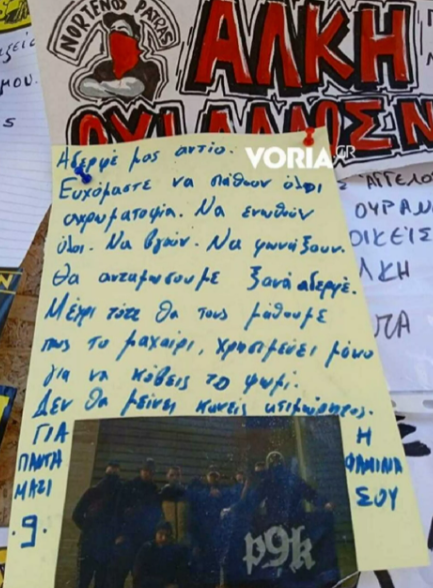 NORTENOS PATRAS
ΑΛΚΗ
ΟΧΙ ΑΛΛΟΣ Ν
VORIA.GR
Αδερφέ μας αντίο.
Ευχόμαστε να πάθουν όλοι
αχρωματοψία. Να ενωθούν
όλοι. Να βγούν. Να φωνάξουν.
Θα ανταμώσουμε ξανά αδερφέ.
Μέχρι τότε θα τους μάθουμε
πως το μαχαίρι, χρησιμεύει μόνο
για να κόβεις το ψωμί.
Δεν θα μείνει κανείς ατιμώρητος.
ΓΙΑ
ΠΑΝΤΑ
ΜΑΖΙ
.9.
Η
ΦΑΜΙΛΙΑ
ΣΟΥ
p9k
ΑΓΓΕΛΟ
ΟΥΡΑΝ
ΟΙΚΕΙΣ
ΛΚΗ
ΜΟΥ.